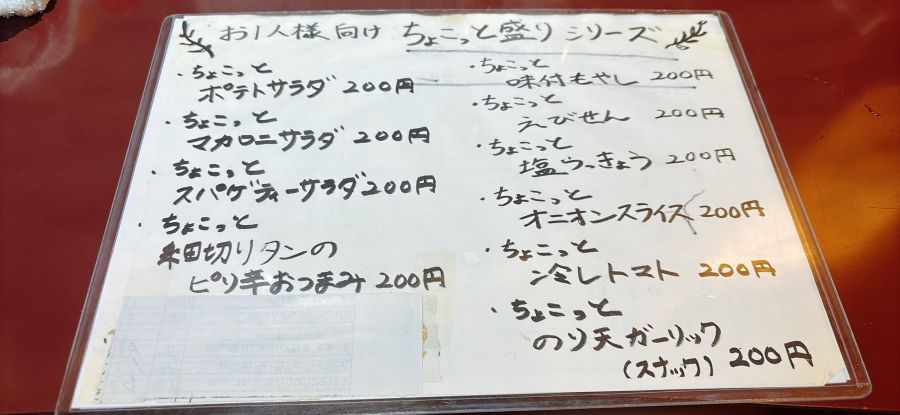 お1人様向け ちょこっと盛りシリーズ
・ちょこっと
ポテトサラダ 200円
・ちょこっと
マカロニサラダ 200円
・ちょこっと
スパゲティーサラダ 200円
・ちょこっと
細切りタンの
ピリ辛おつまみ 200円
・ちょこっと
味付もやし 200円
・ちょこっと
えびせん 200円
・ちょこっと
塩らっきょう 200円
・ちょこっと
オニオンスライス 200円
・ちょこっと
冷しトマト 200円
・ちょこっと
のり天ガーリック
(スナック) 200円